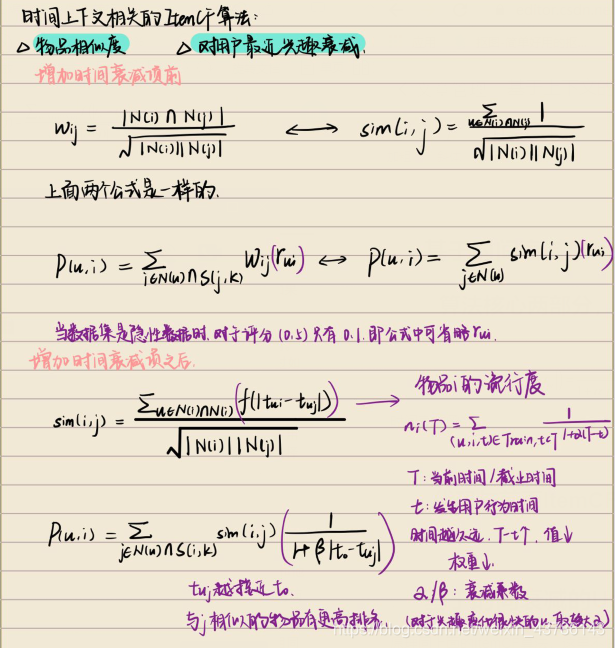 时间上下文相关的ItemCF算法:
△ 物品相似度 △ 对用户最近兴趣衰减.
增加时间衰减项前
Wij = |N(i) ∩ N(j)| / √|N(i)||N(j)| ⟷ sim(i,j) = Σu∈N(i)∩N(j) 1 / √|N(i)||N(j)|
上面两个公式是一样的.
P(u,i) = Σ i∈N(u)∩S(j,k) Wij(rui) ⟷ P(u,i) = Σ j∈N(u) sim(i,j)(rui)
当数据集是隐性数据时.对于评分(0,5)只有0.1.即公式中可省略rui.
增加时间衰减项之后.
sim(i,j) = Σu∈N(i)∩N(i) (f(|tui-tuj|)) / √|N(i)||N(j)| →
物品i的流行度
ni(T) = Σ (u,i,t)∈Train,t<T 1 / 1+α(T-t)
T:当前时间/截止时间
t:发生用户行为时间
时间越久远.T-t↑,值↓
权重↓.
α/β:衰减系数
P(u,i) = Σ j∈N(u)∩S(i,k) sim(i.j) (1 / 1+β|t0-tuj|)
tuj越接近t0.
与j相似的物品有更高排名.
https://blog.csdn.net/weixin_43736143